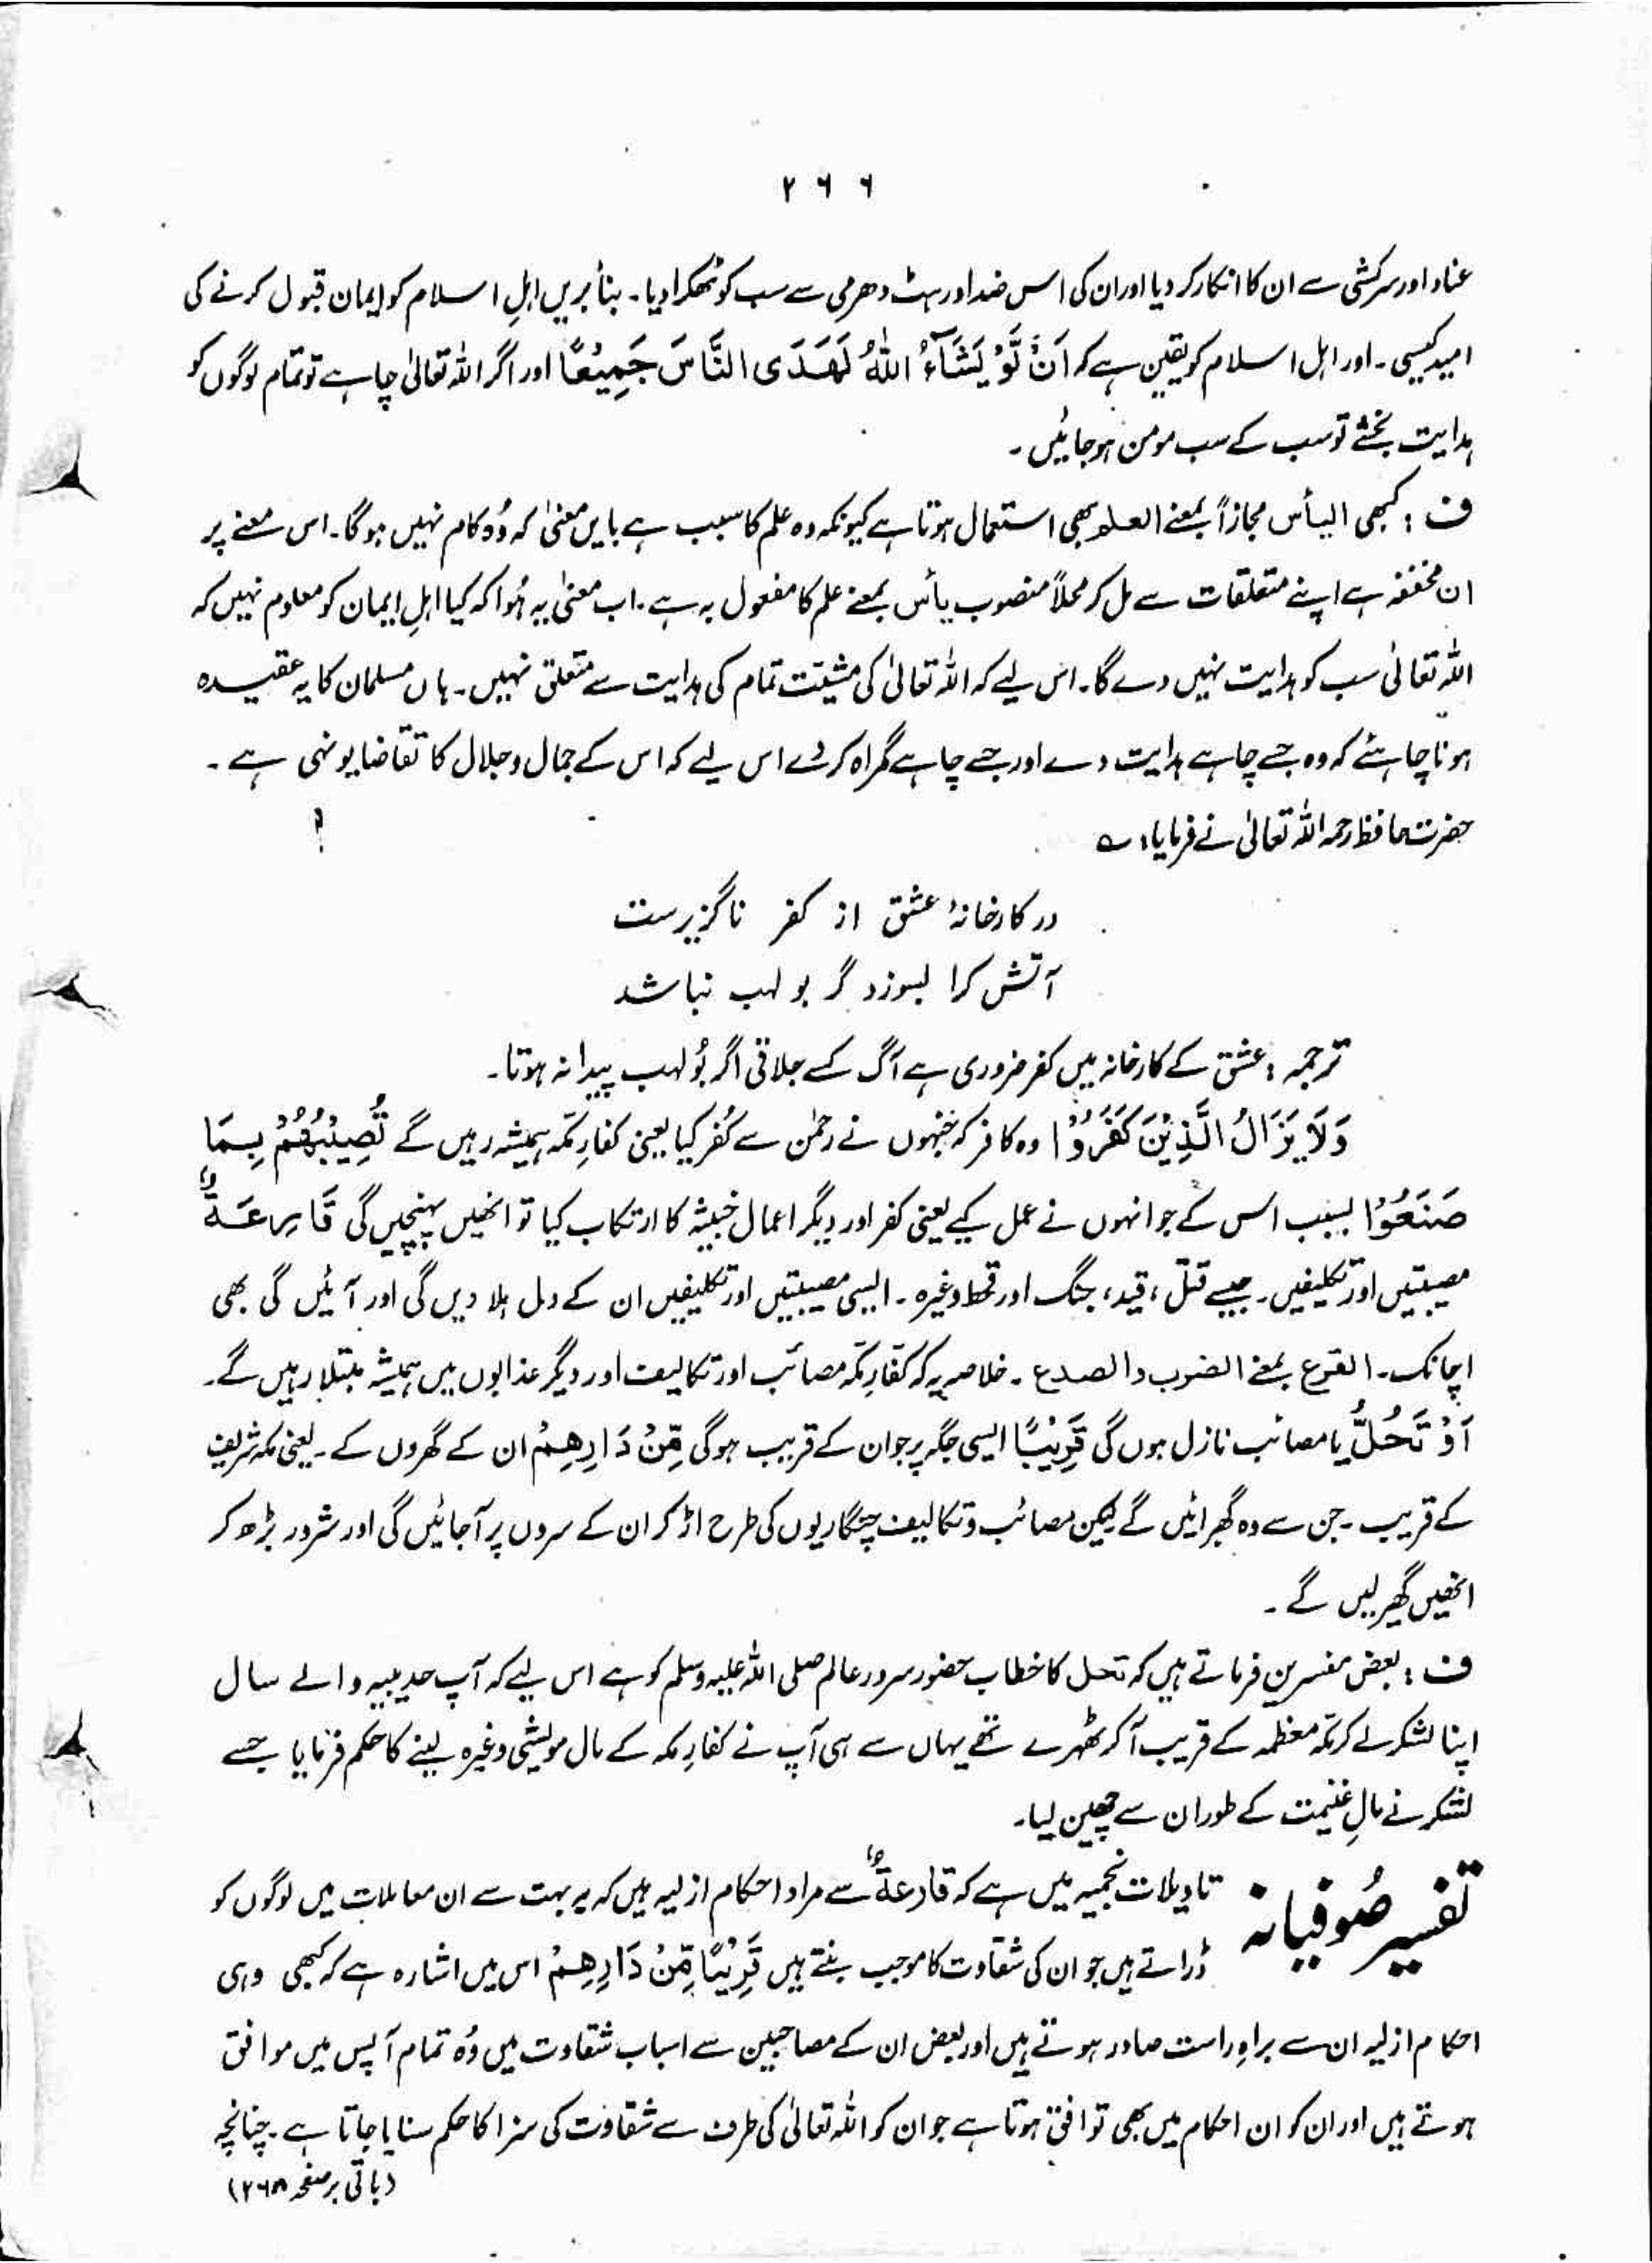 ۲۶۶
عناد اور سرکشی سے ان کا انکار کر دیا اور ان کی اس ضد اور ہٹ دھرمی سے سب کو ٹھکرا دیا۔ بنأ بریں اہلِ اسلام کو ایمان قبول کرنے کی
امید کیسی۔ اور اہل اسلام کو یقین ہے کہ اَنْ لَّوْ یَشَآءُ اللّٰهُ لَهَدَی النَّاسَ جَمِیْعًا اور اگر اللہ تعالیٰ چاہے تو تمام لوگوں کو
ہدایت بخشے تو سب کے سب مومن ہو جائیں۔
ف : کبھی الیأس مجازاً بمعنے العلم بھی استعمال ہوتا ہے کیونکہ وہ علم کا سبب ہے بایں معنیٰ کہ وُہ کام نہیں ہو گا۔ اس معنے پر
ان مخففہ ہے اپنے متعلقات سے مل کر محلاً منصوب یأس بمعنے علم کا مفعول بہ ہے۔ اب معنیٰ یہ ہُوا کہ کیا اہلِ ایمان کو معلوم نہیں کہ
اللہ تعالیٰ سب کو ہدایت نہیں دے گا۔ اس لیے کہ اللہ تعالیٰ کی مشیّت تمام کی ہدایت سے متعلق نہیں۔ ہاں مسلمان کا یہ عقیدہ
ہونا چاہئے کہ وہ جسے چاہے ہدایت دے اور جسے چاہے گمراہ کر دے اس لیے کہ اس کے جمال و جلال کا تقاضا یونہی ہے۔
حضرت حافظ رحمہ اللہ تعالیٰ نے فرمایا: ؎
در کارخانۂ عشق از کفر ناگزیرست
آتش کرا بسوزد گر بولہب نباشد
ترجمہ : عشق کے کارخانہ میں کفر ضروری ہے آگ کسے جلاتی اگر بُولہب پیدا نہ ہوتا۔
وَلَا یَزَالُ الَّذِیْنَ کَفَرُوْا وہ کافر کہ جنہوں نے رحمٰن سے کُفر کیا یعنی کفارِ مکّہ ہمیشہ رہیں گے تُصِیْبُهُمْ بِمَا
صَنَعُوْا بسبب اس کے جو انہوں نے عمل کیے یعنی کفر اور دیگر اعمال خبیثہ کا ارتکاب کیا تو انھیں پہنچیں گی قَارِعَةٌ
مصیبتیں اور تکلیفیں۔ جیسے قتل، قید، جنگ اور قحط وغیرہ۔ ایسی مصیبتیں اور تکلیفیں ان کے دل ہلا دیں گی اور آئیں گی بھی
اچانک۔ القرع بمعنے الضرب والصدع۔ خلاصہ یہ کہ کفّارِ مکّہ مصائب اور تکالیف اور دیگر عذابوں میں ہمیشہ مبتلا رہیں گے۔
اَوْ تَحُلُّ یا مصائب نازل ہوں گی قَرِیْبًا ایسی جگہ پر جو ان کے قریب ہو گی مِّنْ دَارِهِمْ ان کے گھروں کے۔ یعنی مکہ شریف
کے قریب۔ جن سے وہ گھبرائیں گے لیکن مصائب و تکالیف چنگاریوں کی طرح اڑ کر ان کے سروں پر آ جائیں گی اور شرور بڑھ کر
انھیں گھیر لیں گے۔
ف : بعض مفسرین فرماتے ہیں کہ تحل کا خطاب حضور سرور عالم صلی اللہ علیہ وسلم کو ہے اس لیے کہ آپ حدیبیہ والے سال
اپنا لشکر لے کر مکّہ معظمہ کے قریب آ کر ٹھہرے تھے یہاں سے ہی آپ نے کفارِ مکہ کے مال مویشی وغیرہ لینے کا حکم فرمایا جسے
لشکر نے مالِ غنیمت کے طور ان سے چھین لیا۔
تفسیر صُوفیانہ تاویلات نجمیہ میں ہے کہ قارعةٌ سے مراد احکام ازلیہ ہیں کہ یہ بہت سے ان معاملات میں لوگوں کو
ڈراتے ہیں جو ان کی شقاوت کا موجب بنتے ہیں قَرِیْبًا مِّنْ دَارِهِمْ اس میں اشارہ ہے کہ کبھی وہی
احکام ازلیہ ان سے براہِ راست صادر ہوتے ہیں اور بعض ان کے مصاحبین سے اسباب شقاوت میں وُہ تمام آپس میں موافق
ہوتے ہیں اور ان کو ان احکام میں بھی توافق ہوتا ہے جو ان کو اللہ تعالیٰ کی طرف سے شقاوت کی سزا کا حکم سنایا جاتا ہے۔ چنانچہ
(باقی بر صفحہ ۲۶۸)